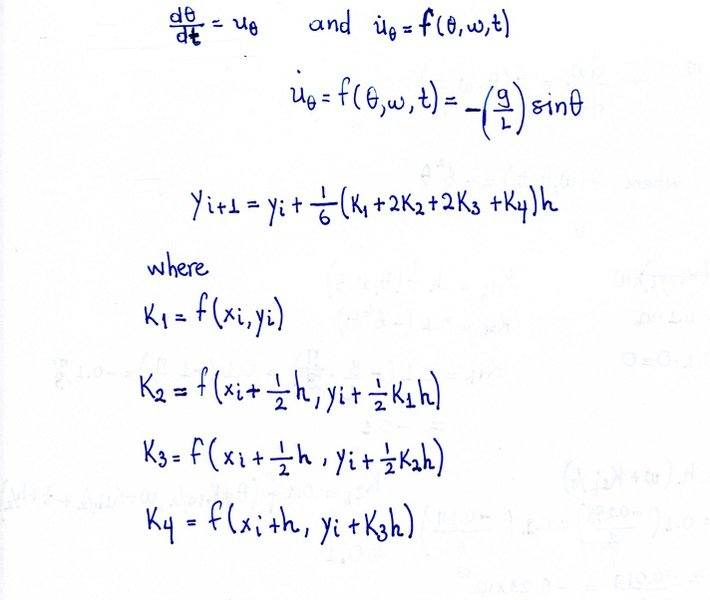 dθ/dt = u_θ and u̇_θ = f(θ,w,t)
u̇_θ = f(θ,w,t) = -(g/L) sinθ
y_{i+1} = y_i + 1/6 (K_1 + 2K_2 + 2K_3 + K_4)h
where
K_1 = f(x_i, y_i)
K_2 = f(x_i + 1/2 h, y_i + 1/2 K_1 h)
K_3 = f(x_i + 1/2 h, y_i + 1/2 K_2 h)
K_4 = f(x_i + h, y_i + K_3 h)